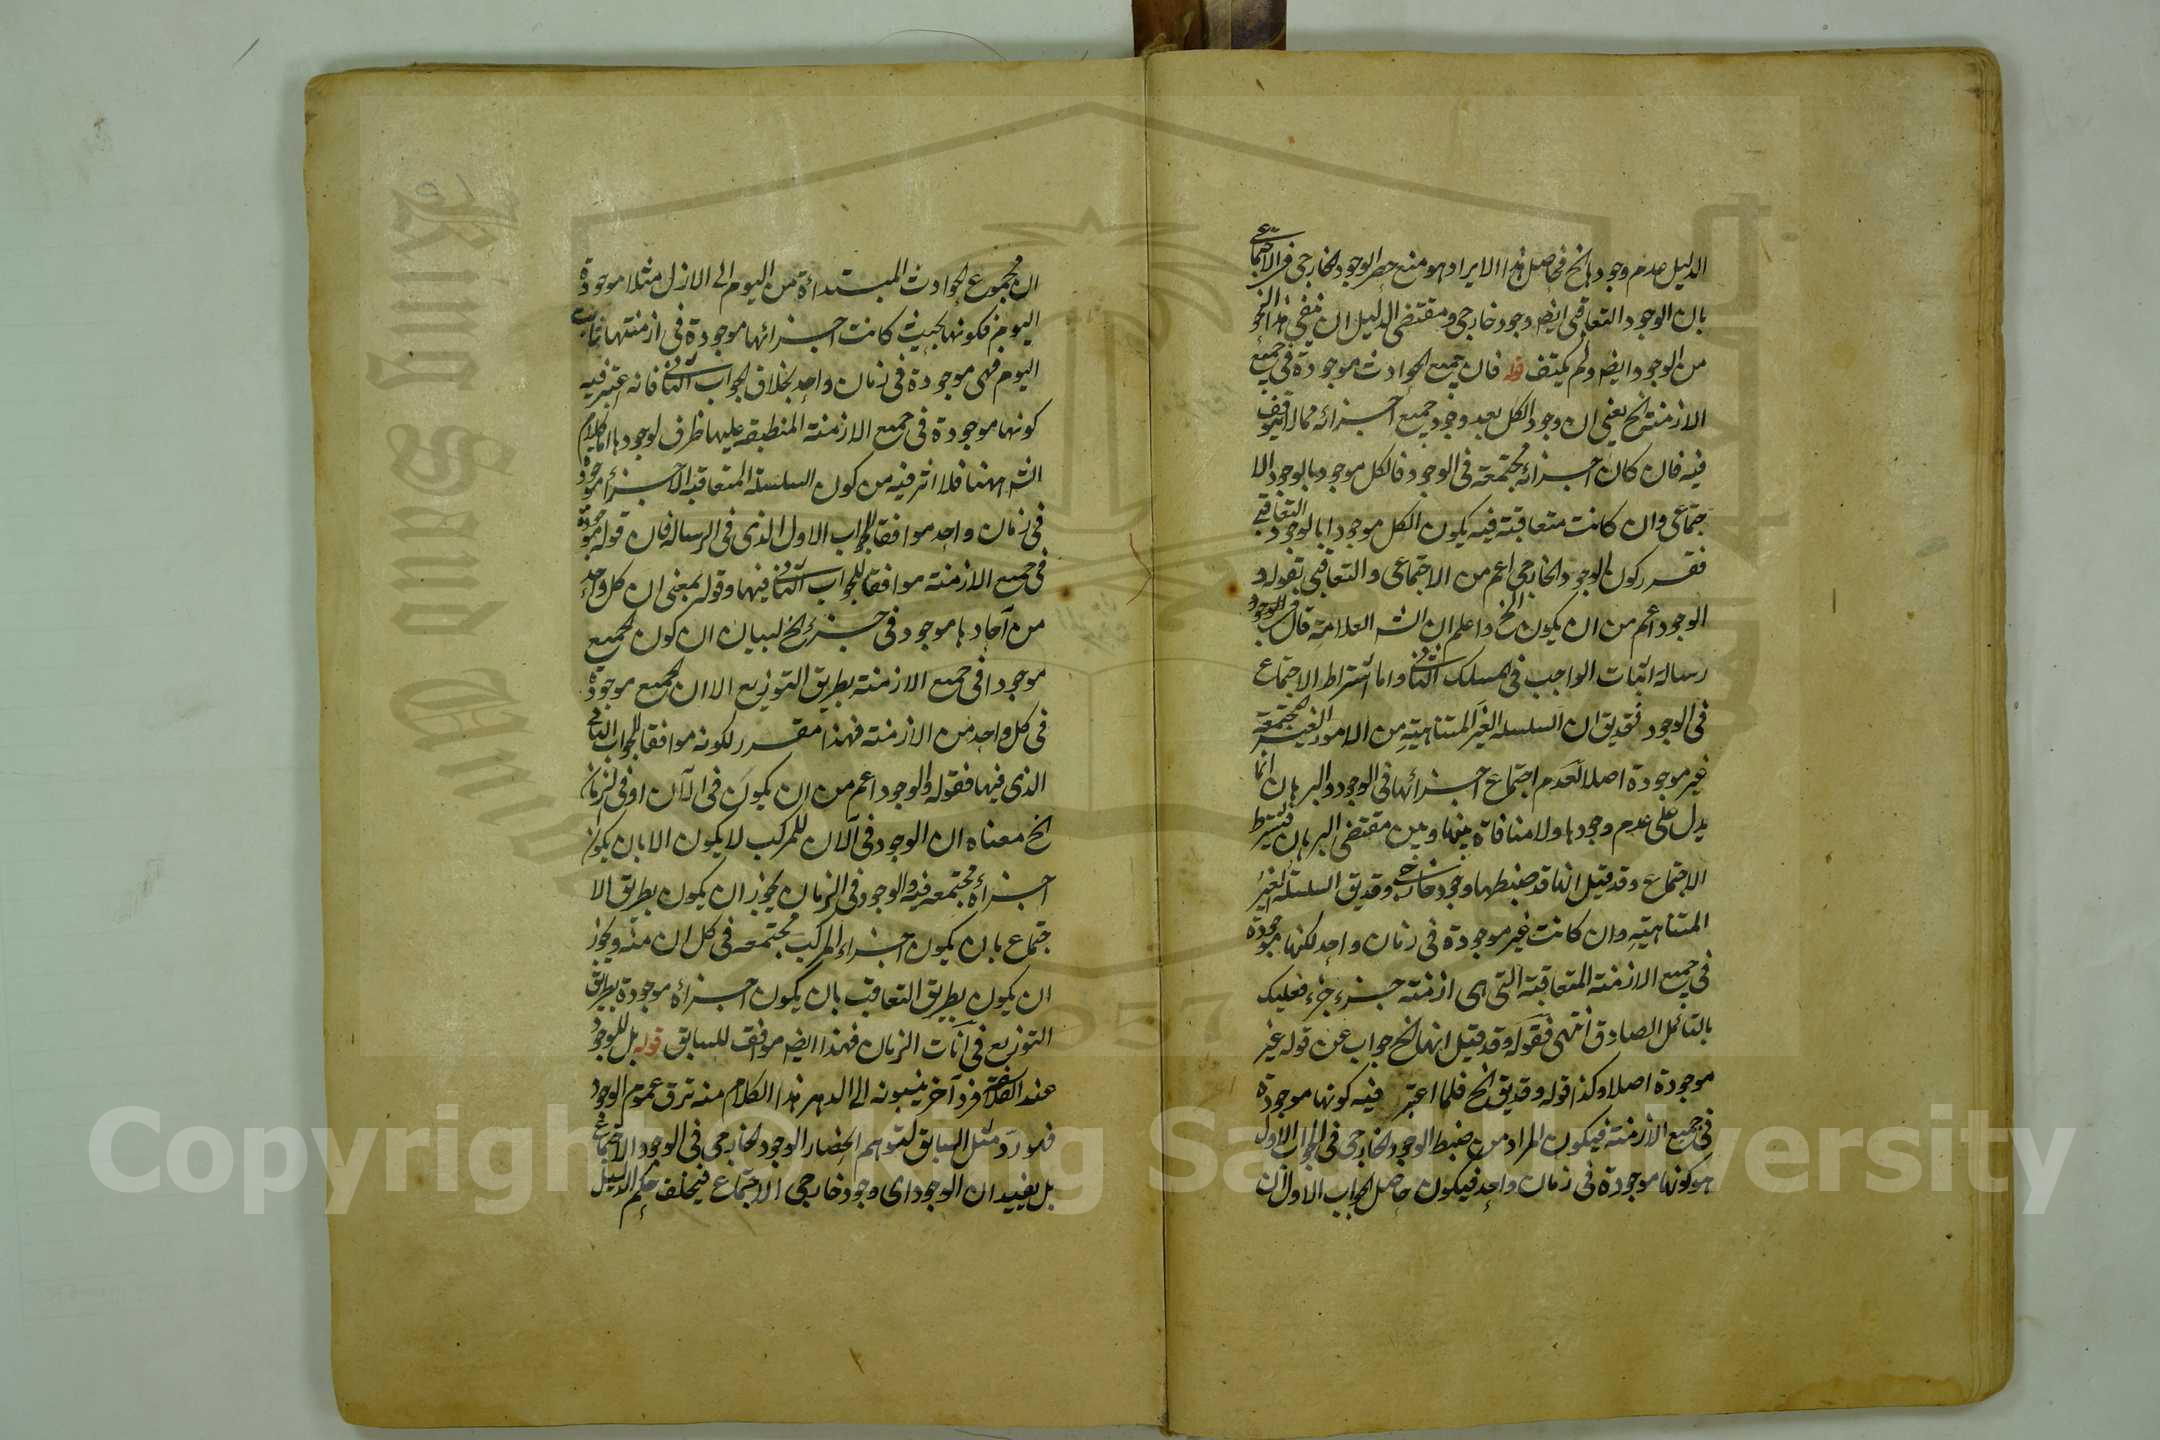 الدليل عدم وجودها الخ فحاصل هذا الايراد هو منع حصر الوجود الخارجى فى الاجتماعى
بان الوجود التعاقبى ايضا وجود خارجى ومقتضى الدليل ان ينفى هذا النحو
من الوجود ايضا ولم يكتف قوله فان جميع الحوادث موجودة فى جميع
الازمنة الخ يعنى ان وجود الكل بعد وجود جميع اجزائه مما لا يتوقف
فيه فان كان اجزائه مجتمعة فى الوجود فالكل موجود بالوجود الا
جتماعى وان كانت متعاقبة فيه يكون الكل موجودا بالوجود التعاقبى
فقرر كون الوجود الخارجى اعم من الاجتماعى والتعاقبى بقوله و
الوجود اعم من ان يكون الخ واعلم ان الشه العلامة قال فى
رسالة اثبات الواجب فى المسلك الثانى واما اشتراط الاجتماع
فى الوجود فقديق ان السلسلة الغير المتناهية من الامور الغير المجتمعة
غير موجودة اصلا لعدم اجتماع اجزائها فى الوجود والبرهان انما
يدل على عدم وجودها ولا منافاة بينها وبين مقتضى البرهان فيشترط
الاجتماع وقد قيل انها قد ضبطها وجود خارجى وقديق السلسلة الغير
المتناهية وان كانت غير موجودة فى زمان واحد لكنها موجودة
فى جميع الازمنة المتعاقبة التى هى ازمنة جزء جزء فعليك
بالتأمل الصادق انتهى فقوله وقد قيل انها الخ جواب عن قوله غير
موجودة اصلا وكذا قوله وقديق الخ فلما اعتبر فيه كونها موجودة
فى جميع الازمنة فيكون المراد من ضبط الوجود الخارجى فى الجواب الاول
هو كونها موجودة فى زمان واحد فيكون حاصل الجواب الاول ان
ان مجموع الحوادث المبتدائة من اليوم الى الازل مثلا موجودة
اليوم فكونها بحيث كانت اجزائها موجودة فى ازمنتها ثابت
اليوم فهى موجودة فى زمان واحد بخلاف الجواب الثانى فانه اعتبر فيه
كونها موجودة فى جميع الازمنة المنطبقة عليها ظرف لوجودها اما كلام
الشه ههنا فلا اثر فيه من كون السلسلة المتعاقبة الاجزاء موجودة
فى زمان واحد موافقا للجواب الاول الذى فى الرسالة فان قوله موجودة
فى جميع الازمنة موافقا للجواب الثانى فيها وقوله بمعنى ان كل واحد
من آحادها موجود فى جزء الخ لبيان ان كون الجميع
موجودا فى جميع الازمنة بطريق التوزيع الا ان الجميع موجودة
فى كل واحد من الازمنة فهذا مقرر لكونه موافقا للجواب الثانى
الذى فيها فقوله والوجود اعم من ان يكون فى الآن او فى الزمان
الخ معناه ان الوجود فى الآن للمركب لا يكون الا بان يكون
اجزائه مجتمعة فيه والوجود فى الزمان يجوز ان يكون بطريق الا
جتماع بان يكون اجزاء المركب مجتمعة فى كل ان منه ويجوز
ان يكون بطريق التعاقب بان يكون اجزائه موجودة بطريق
التوزيع فى آنات الزمان فهذا ايضا موافق للسابق قوله بل للوجود
عند الفلاسفة فرد آخر ينسبونه الى الدهر هذا الكلام منه ترق عموم الوجود
فلورد مثل السابق لتوهم انحصار الوجود الخارجى فى الوجود الاجتماعى
بل يفيد ان الوجود اى وجود خارجى الاجتماع فيتخلف حكم الدليل